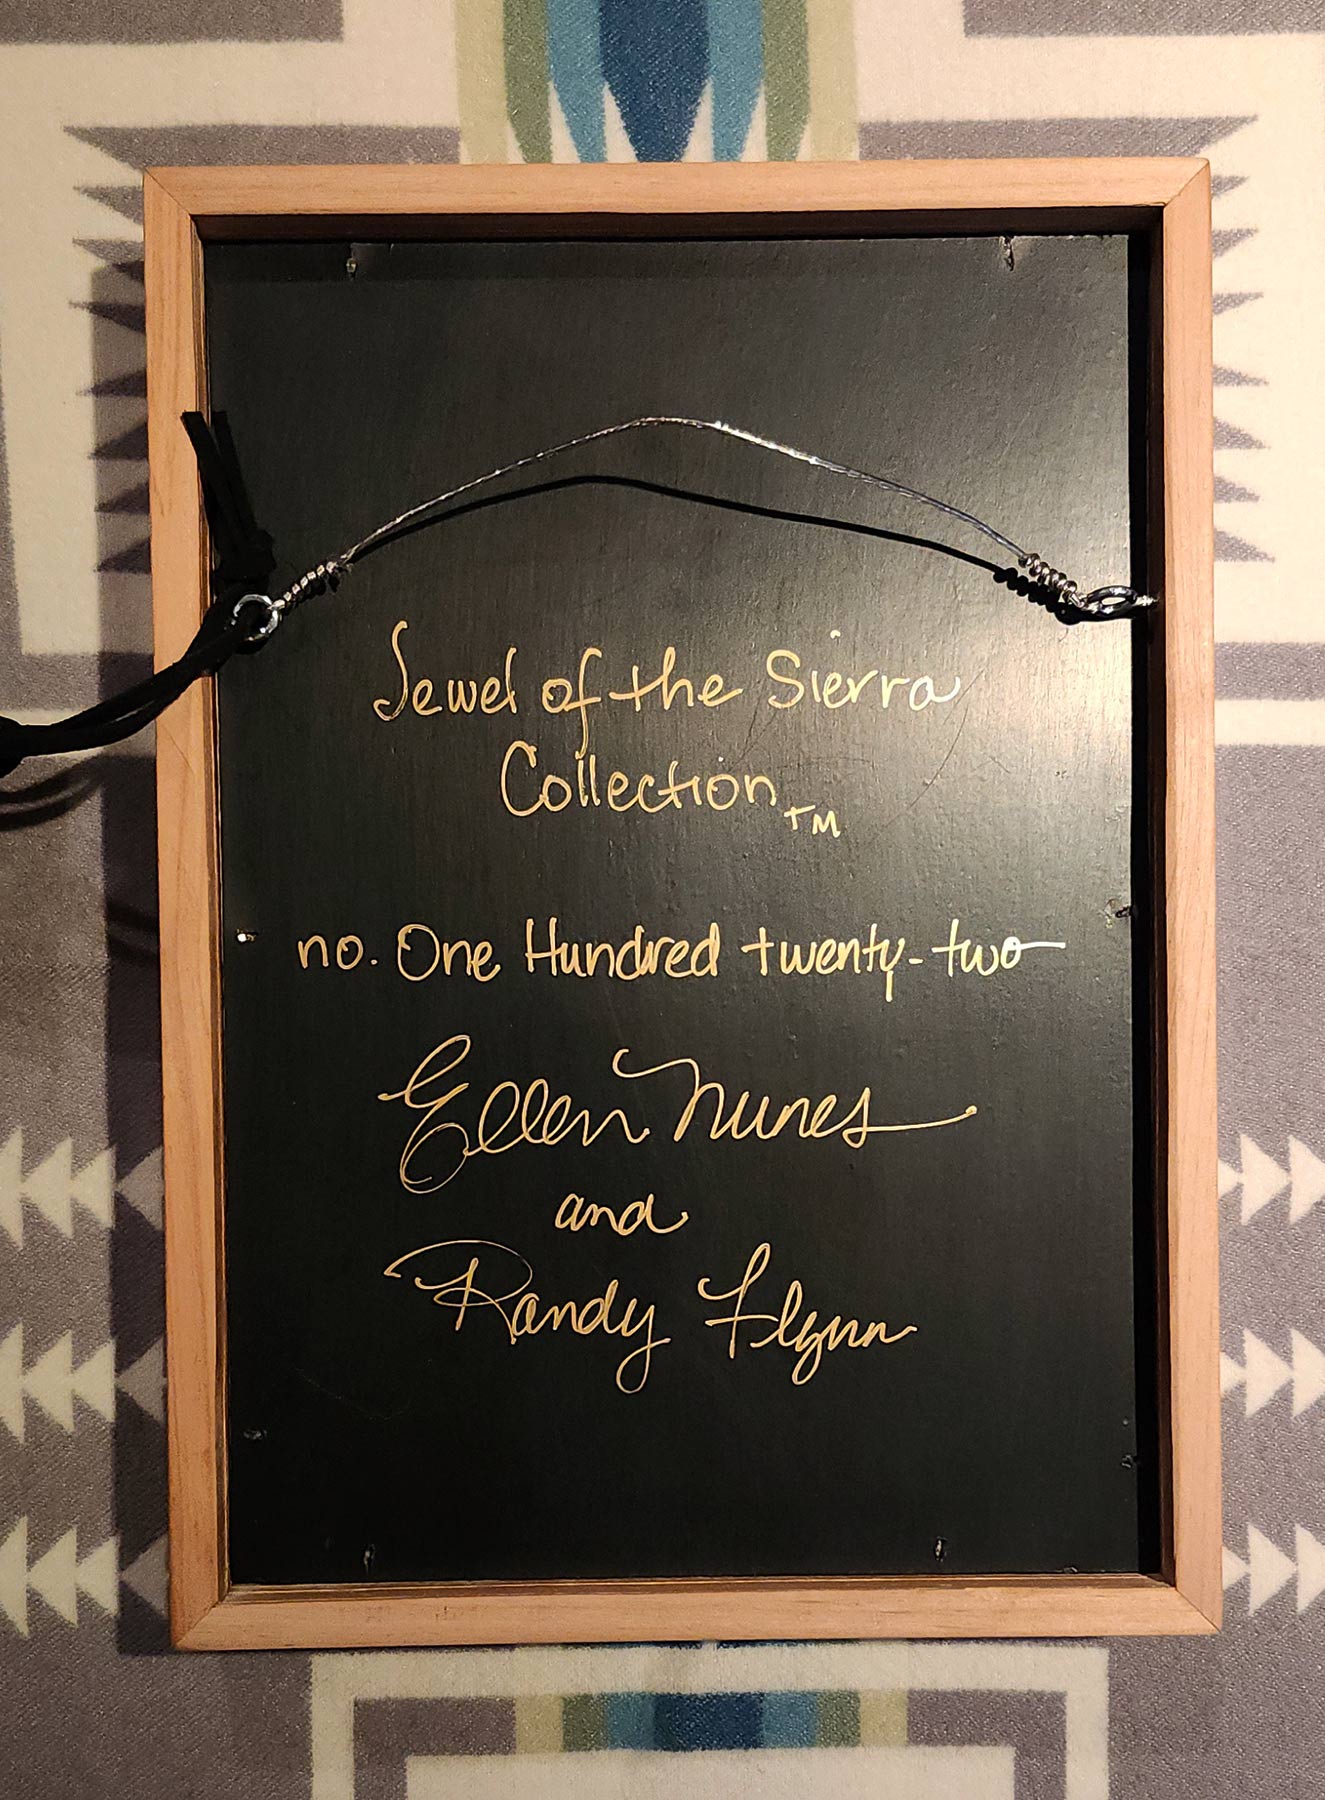 Jewel of the Sierra
Collection TM
no. One Hundred twenty-two
Ellen Nunes
and
Randy Flynn